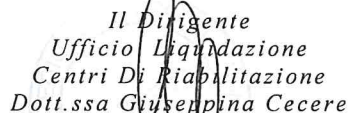 Il Dirigente
Ufficio Liquidazione
Centri Di Riabilitazione
Dott.ssa Giuseppina Cecere